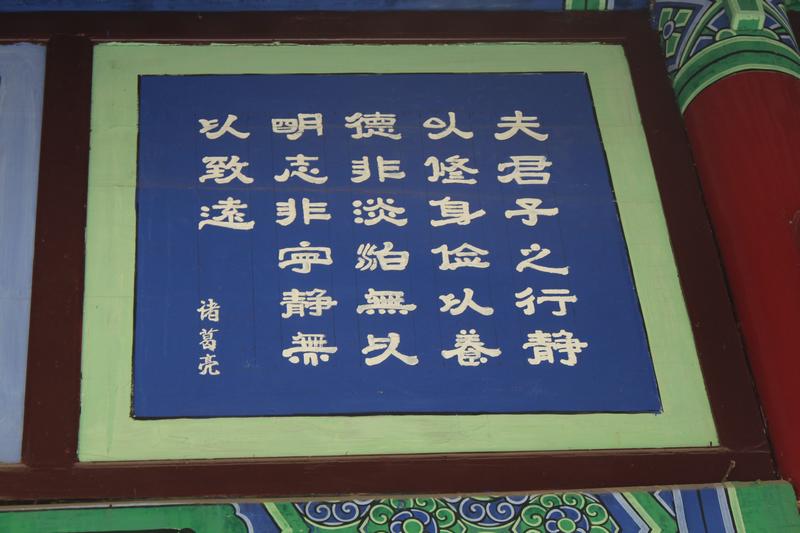 夫君子之行静
以修身俭以养
德非淡泊無以
明志非宁静無
以致远
诸葛亮